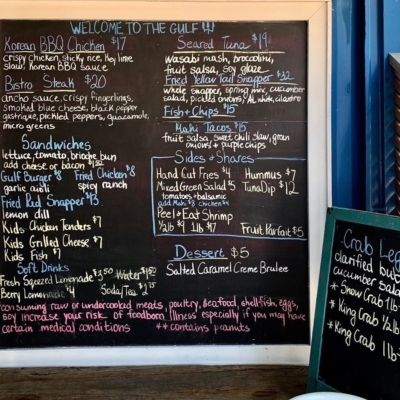 WELCOME TO THE GULF!!!
Korean BBQ Chicken $17
crispy chicken, sticky rice, key lime
slaw, Korean BBQ sauce
Bistro Steak $20
ancho sauce, crispy fingerlings,
smoked blue cheese, black pepper
gastrique, pickled peppers, guacamole,
micro greens
Sandwiches
lettuce, tomato, brioche bun
add cheese or bacon
Gulf Burger $8 Fried Chicken $8
garlic aioli spicy ranch
Fried Red Snapper $13
lemon dill
Kids Chicken Tenders $7
Kids Grilled Cheese $7
Kids Fish $7
Soft Drinks
Fresh Squeezed Lemonade $3.50 Water
Berry Lemonade $4 Soda/Tea
Seared Tuna $19
wasabi mash, broccolini,
fruit salsa, soy glaze
Fried Yellow Tail Snapper $32
whole snapper, spring mix, cucumber
salad, pickled onions, AL white, cilantro
Fish + Chips $15
Mahi Tacos $15
fruit salsa, sweet chili slaw, green
onions + purple chips
Sides + Shares
Hand Cut Fries $4 Hummus $7
Mixed Green Salad $5 Tuna Dip $12
tomatoes + balsamic
add Mahi $8 chicken
Peel + Eat Shrimp
1/2lb 1lb Fruit Parfait $5
Dessert $5
Salted Caramel Creme Brulee
consuming raw or undercooked meats, poultry, seafood, shellfish, eggs,
soy increase your risk of foodborn illness especially if you may have
certain medical conditions **contains peanuts
Crab Legs
clarified
cucumber salad
*Snow Crab 1lb
*King Crab 1/2lb
*King Crab 1lb